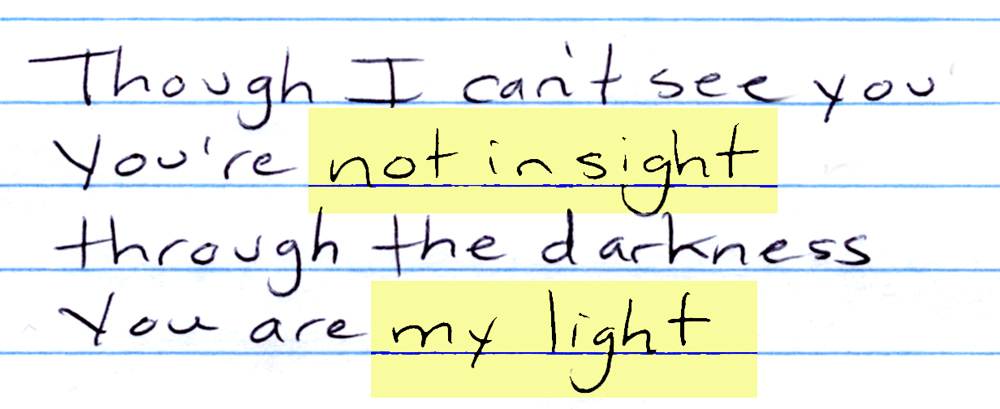 Though I can't see you
You're not in sight
through the darkness
You are my light